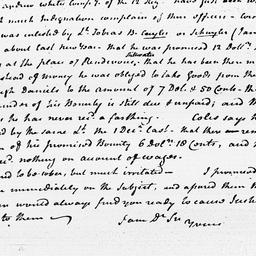 andrew White Comp.y of the 12 Reg.t have just been w
much Indignation complain of their officers
was enlisted by Lt. Tobias B. Cuyler or Schuyler (Jam
about last New Year. that he was promised 12 Doll.s
at the place of Rendezvous. that he has been then m
instead of money he was obliged to take Goods from the
Daniels to the amount of 7 Dol. & 50 Cents. the
nder of his Bounty is still due & unpaid; and
he has never rec.d a farthing. Coles says h
ed by the same Lt. the 1 Dec. last. that there rem
of his promised Bounty 6 Dol.s 18 Cents, and
rec.d nothing on account of wages.
to be sober, but much irritated — I promised
immediately on the Subject, and assured them th
would always find you ready to cause Such
to them — I am Dr Sir
Yours